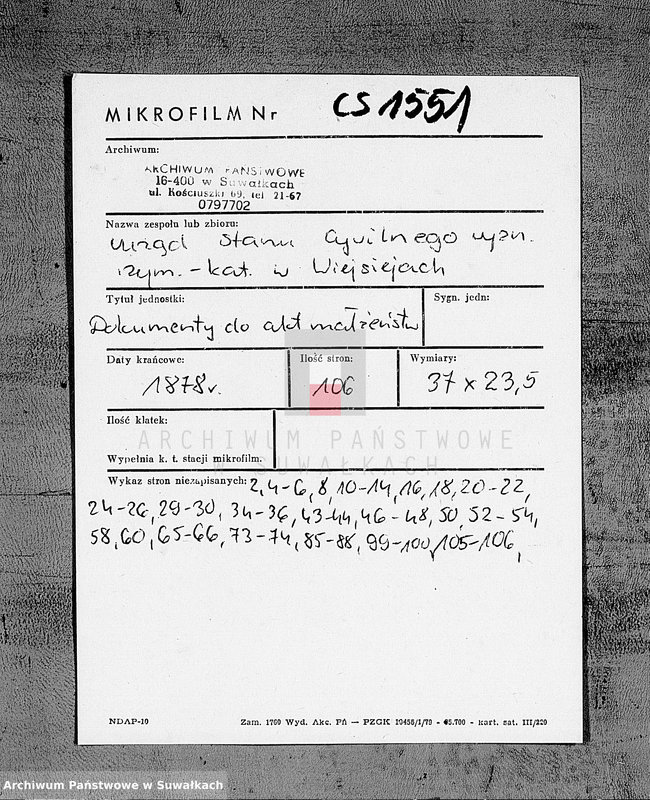 MIKROFILM Nr CS 1551
Archiwum:
ARCHIWUM PAŃSTWOWE
16-400 w Suwałkach
ul. Kościuszki 69, tel 21-67
0797702
Nazwa zespołu lub zbioru:
Urząd Stanu Cywilnego wyzn.
rzym.-kat. w Wiejsiejach
Tytuł jednostki: Sygn. jedn:
Dokumenty do akt małżeństw
Daty krańcowe: Ilość stron: Wymiary:
1878 r. 106 37 x 23,5
Ilość klatek:
ARCHIWUM PAŃSTWOWE
W SUWAŁKACH
Wypełnia k. t. stacji mikrofilm.
Wykaz stron niezapisanych: 2, 4-6, 8, 10-14, 16, 18, 20-22,
24-26, 29-30, 34-36, 43-44, 46-48, 50, 52-54,
58, 60, 65-66, 73-74, 85-88, 99-100, 105-106,
NDAP-10 Zam. 1760 Wyd. Akc. Fń — PZGK 10456/1/79 - 65.700 - kart. sat. III/220
Archiwum Państwowe w Suwałkach